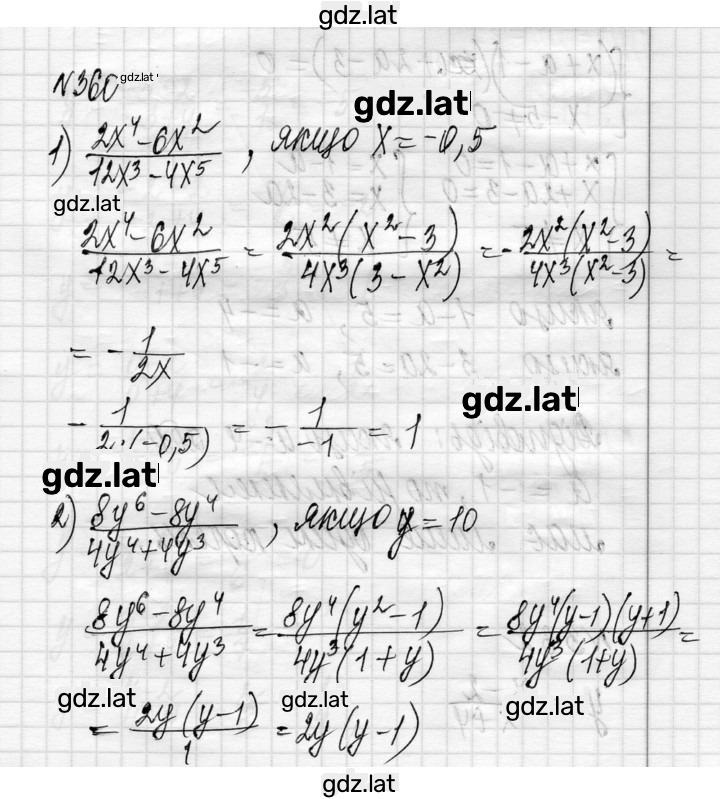 gdz.lat
N360 gdz.lat
gdz.lat
1) (2x⁴-6x²)/(12x³-4x⁵), якщо x=-0,5
gdz.lat
(2x⁴-6x²)/(12x³-4x⁵) = 2x²(x²-3)/4x³(3-x²) = -2x²(x²-3)/4x³(x²-3) =
= -1/2x
gdz.lat
-1/2·(-0,5) = -1/-1 = 1
gdz.lat
2) (8y⁶-8y⁴)/(4y⁴+4y³), якщо y=10
(8y⁶-8y⁴)/(4y⁴+4y³) = 8y⁴(y²-1)/4y³(1+y) = 8y⁴(y-1)(y+1)/4y³(1+y) =
gdz.lat gdz.lat gdz.lat
= 2y(y-1)/1 = 2y(y-1)
gdz.lat